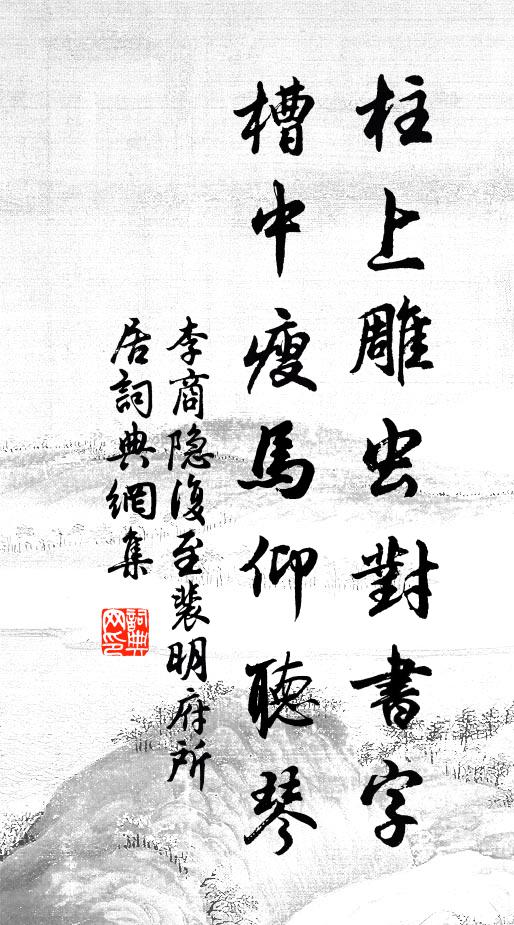 柱上雕虫對書字
槽中瘦馬仰聽琴
李商隐復至裴明府所
居詞典網集
詞典
网印